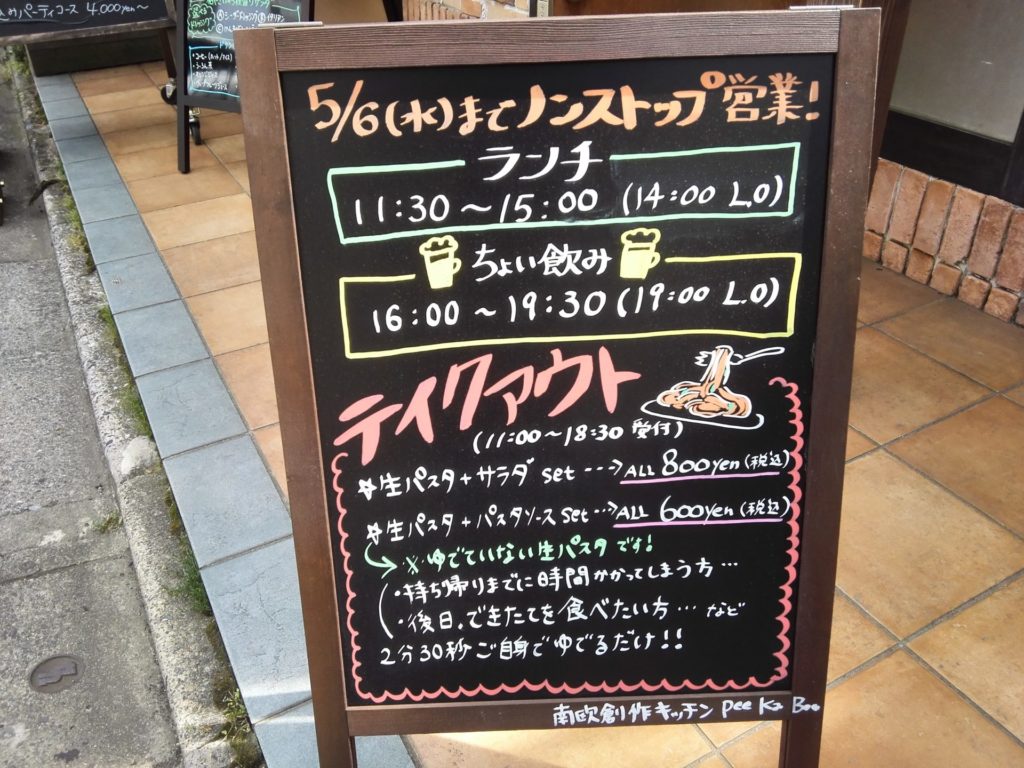 みパーティコース 4,000yen～
5/6(水)まで ノンストップ営業!
ランチ
11:30～15:00 (14:00 L.O)
ちょい飲み
16:00～19:30 (19:00 L.O)
テイクアウト
(11:00～18:30 受付)
生パスタ+サラダ set ---> ALL 800yen (税込)
生パスタ+パスタソース set --> ALL 600yen (税込)
※ゆでていない生パスタです!
・持ち帰りまでに時間かかってしまう方…
・後日、できたてを食べたい方… など
2分30秒ご自身でゆでるだけ!!
南欧創作キッチン Pee Ka Boo